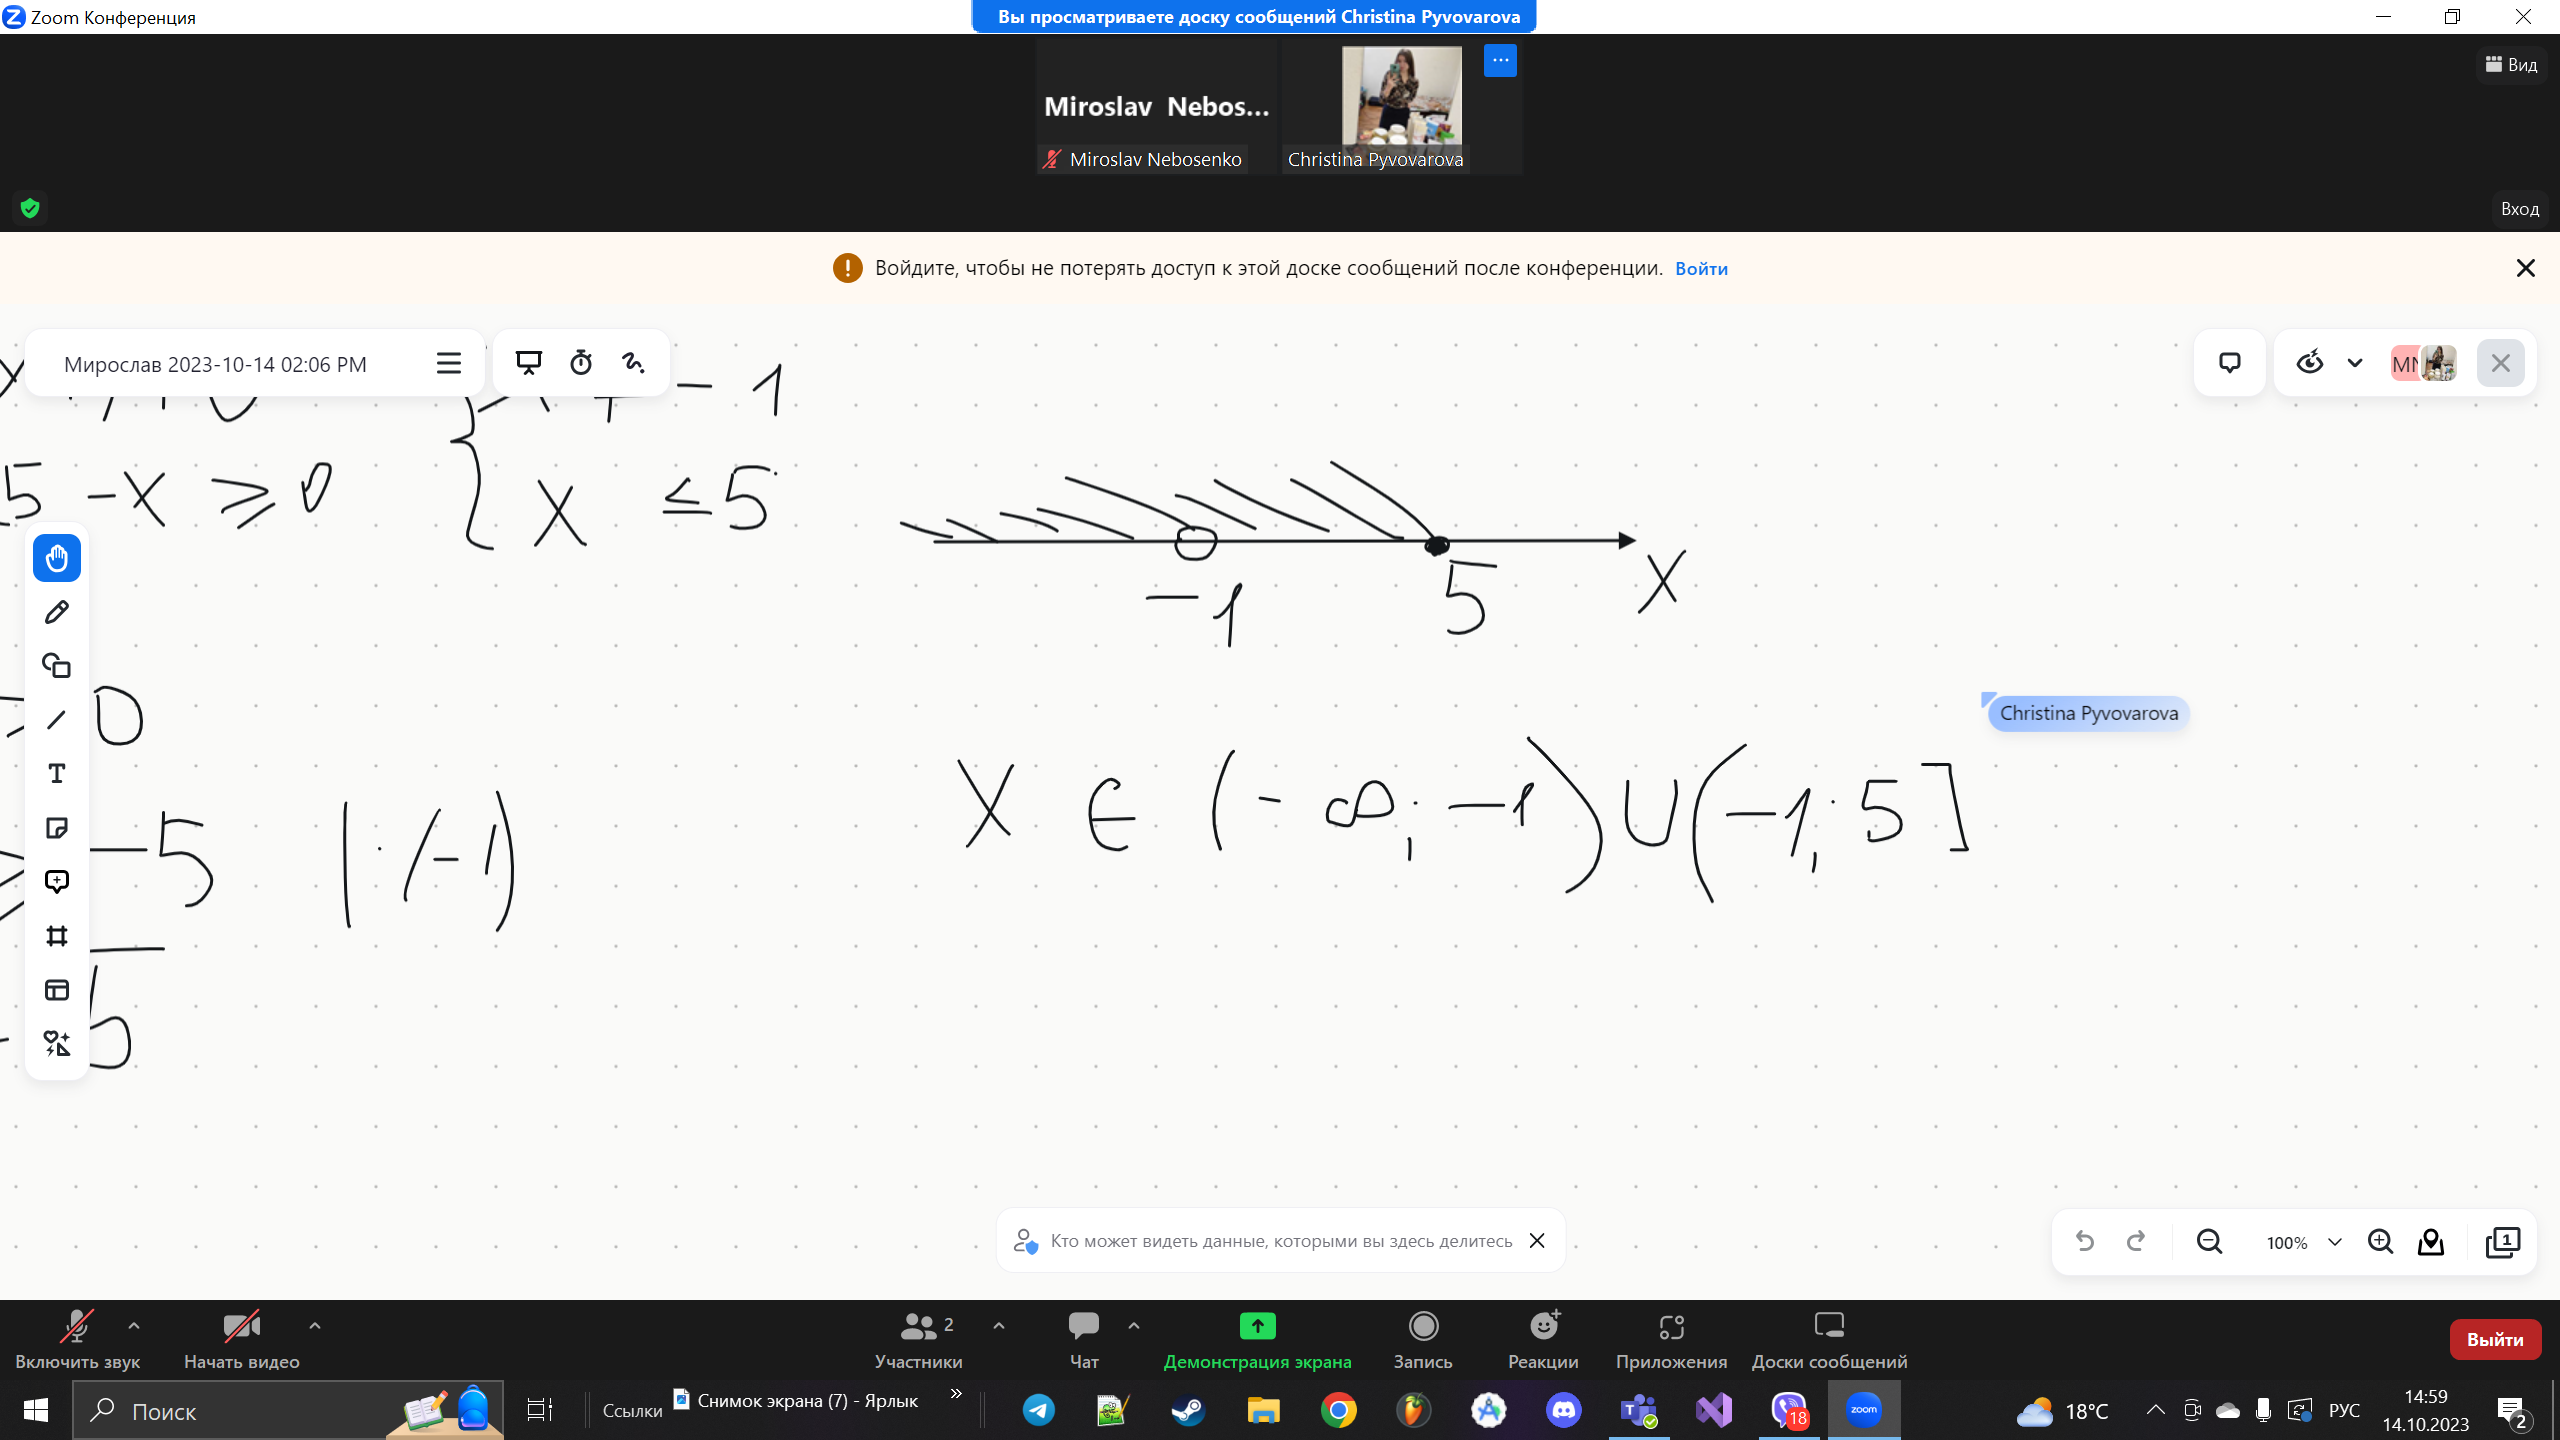 Zoom Конференция
Вы просматриваете доску сообщений Christina Pyvovarova
Вид
Miroslav Nebos...
Miroslav Nebosenko
Christina Pyvovarova
Вход
Войдите, чтобы не потерять доступ к этой доске сообщений после конференции. Войти
Мирослав 2023-10-14 02:06 PM
MN
- 1
5 - x ⩾ 0
x ≤ 5
-1 5 x
0
Christina Pyvovarova
-5 | : (-1)
X ∈ (-∞; -1) U (-1; 5]
T
Кто может видеть данные, которыми вы здесь делитесь
100%
1
Включить звук
Начать видео
Участники 2
Чат
Демонстрация экрана
Запись
Реакции
Приложения
Доски сообщений
Выйти
Поиск
Ссылки
Снимок экрана (7) - Ярлык
18
zoom
18°C
РУС
14:59
14.10.2023
2